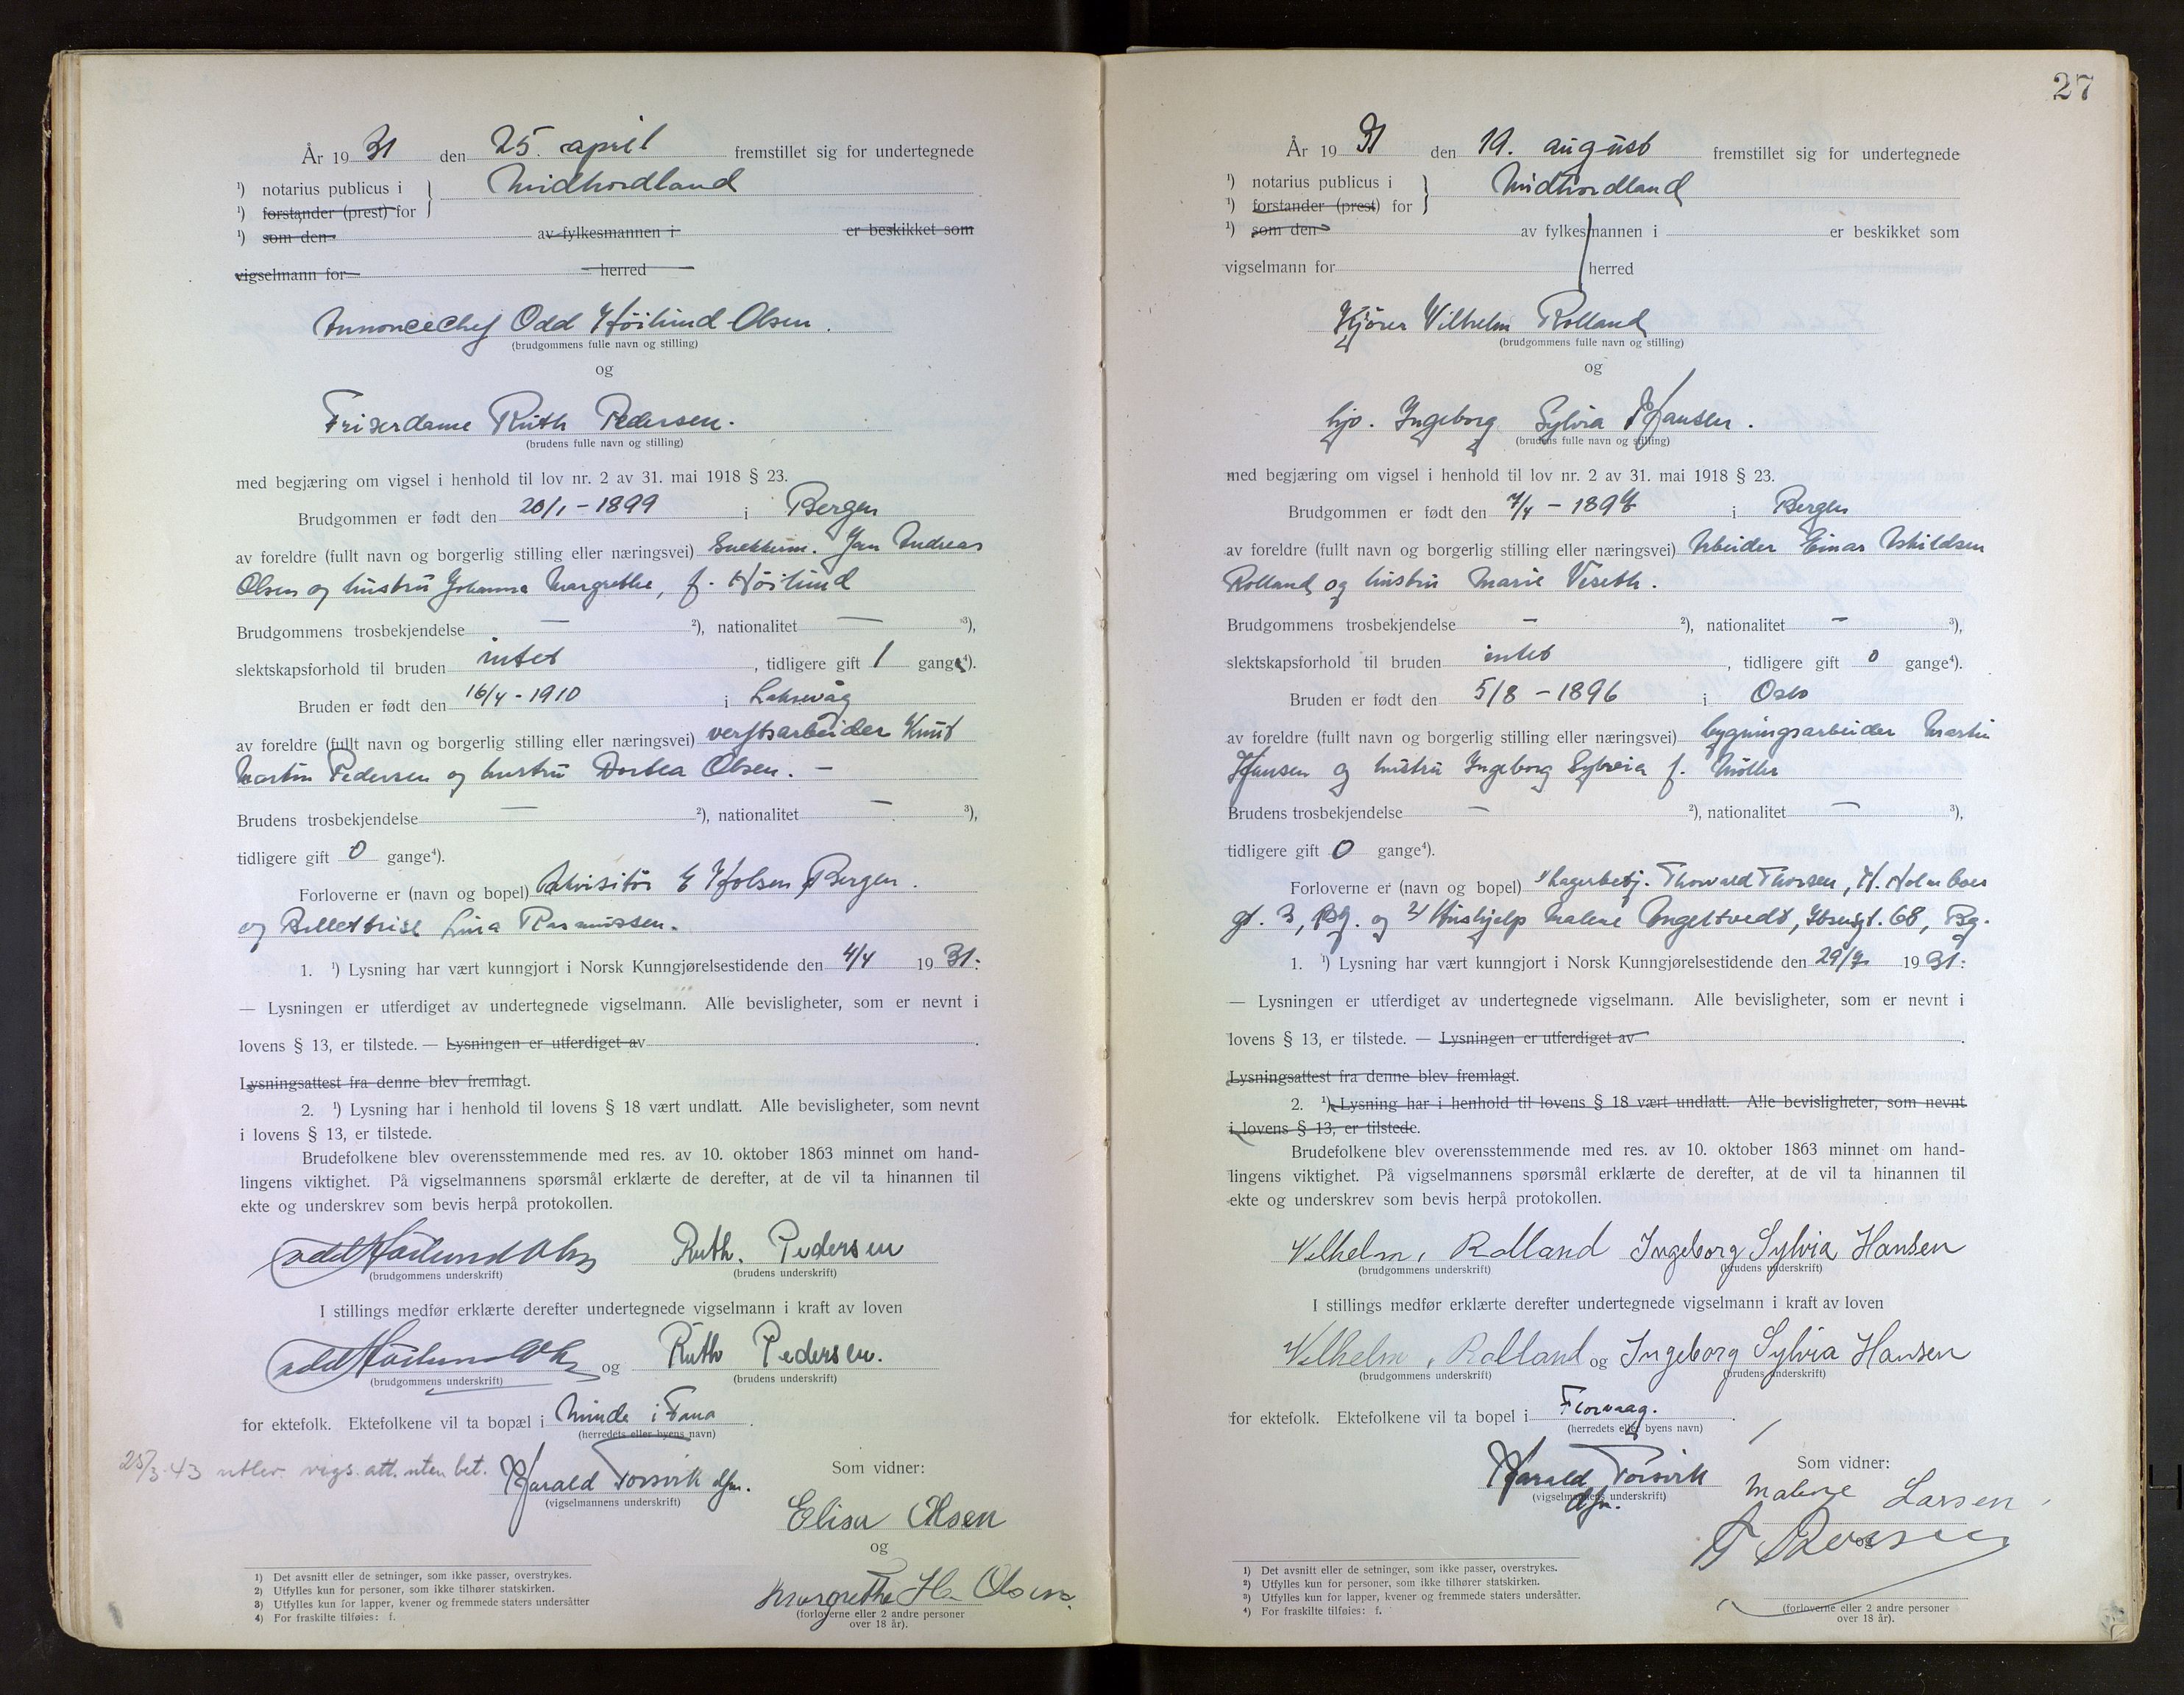 År 19 31 den 25. april fremstillet sig for undertegnede
¹) notarius publicus i } Midhordland
¹) forstander (prest) for
¹) som den av fylkesmannen i er beskikket som
vigselmann for herred
Annoncechef Odd Höilund Olsen.
(brudgommens fulle navn og stilling)
og
Friserdame Ruth Pedersen.
(brudens fulle navn og stilling)
med begjæring om vigsel i henhold til lov nr. 2 av 31. mai 1918 § 23.
Brudgommen er født den 20/1 - 1899 i Bergen
av foreldre (fullt navn og borgerlig stilling eller næringsvei) Jan Andreas
Olsen og hustru Johanna Margrethe, f. Höilund
Brudgommens trosbekjendelse — ²), nationalitet — ³),
slektskapsforhold til bruden intet , tidligere gift 1 gang⁴).
Bruden er født den 16/4 - 1910 i Laksevåg
av foreldre (fullt navn og borgerlig stilling eller næringsvei) verftsarbeider Knut
Martin Pedersen og hustru Dortea Olsen. —
Brudens trosbekjendelse — ²), nationalitet — ³),
tidligere gift 0 gange⁴).
Forloverne er (navn og bopel) Akvisitör E Holsen, Bergen.
og Billettrise Lina Rasmussen.
1. ¹) Lysning har vært kunngjort i Norsk Kunngjørelsestidende den 4/4 19 31.
— Lysningen er utferdiget av undertegnede vigselmann. Alle bevisligheter, som er nevnt i
lovens § 13, er tilstede. — Lysningen er utferdiget av .
Lysningsattest fra denne blev fremlagt.
2. ¹) Lysning har i henhold til lovens § 18 vært undlatt. Alle bevisligheter, som nevnt
i lovens § 13, er tilstede.
Brudefolkene blev overensstemmende med res. av 10. oktober 1863 minnet om hand-
lingens viktighet. På vigselmannens spørsmål erklærte de derefter, at de vil ta hinannen til
ekte og underskrev som bevis herpå protokollen.
Odd Höilund Olsen Ruth. Pedersen
(brudgommens underskrift) (brudens underskrift)
I stillings medfør erklærte derefter undertegnede vigselmann i kraft av loven
Odd Höilund Olsen og Ruth Pedersen.
(brudgommens underskrift) (brudens underskrift)
for ektefolk. Ektefolkene vil ta bopæl i Minde i Fana .
(herredets eller byens navn)
25/3.43 utlev. vigs. att. uten bet. Harald Torsvik dfm.
(vigselmannens underskrift)
Som vidner:
Elisa Olsen
og
Margrethe H. Olsen.
(forloverne eller 2 andre personer
over 18 år).
1) Det avsnitt eller de setninger, som ikke passer, overstrykes.
2) Utfylles kun for personer, som ikke tilhører statskirken.
3) Utfylles kun for lapper, kvener og fremmede staters undersåtter
4) For fraskilte tilføies: f.
27
År 19 31 den 19. august fremstillet sig for undertegnede
¹) notarius publicus i } Midhordland
¹) forstander (prest) for
¹) som den av fylkesmannen i er beskikket som
vigselmann for herred
Kjörer Vilhelm Rolland
(brudgommens fulle navn og stilling)
og
hjv. Ingeborg Sylvia Hansen.
(brudens fulle navn og stilling)
med begjæring om vigsel i henhold til lov nr. 2 av 31. mai 1918 § 23.
Brudgommen er født den i Bergen
av foreldre (fullt navn og borgerlig stilling eller næringsvei) Arbeider Einar Askildsen
Rolland og hustru Marie Veseth.
Brudgommens trosbekjendelse — ²), nationalitet — ³),
slektskapsforhold til bruden intet , tidligere gift 0 gange⁴).
Bruden er født den 5/8 - 1896 i Oslo
av foreldre (fullt navn og borgerlig stilling eller næringsvei) bygningsarbeider Martin
Hansen og hustru Ingeborg Sylvia f. Möller
Brudens trosbekjendelse — ²), nationalitet — ³),
tidligere gift 0 gange⁴).
Forloverne er (navn og bopel) 1/ Lagerbetj. Thorvald Thorsen, H. Holmboes
gt. 3, Bg. og 2/ Hushjelp Malene Angeltvedt, Ibsensgt. 68, Bg.
1. ¹) Lysning har vært kunngjort i Norsk Kunngjørelsestidende den 29/7 19 31.
— Lysningen er utferdiget av undertegnede vigselmann. Alle bevisligheter, som er nevnt i
lovens § 13, er tilstede. — Lysningen er utferdiget av .
Lysningsattest fra denne blev fremlagt.
2. ¹) Lysning har i henhold til lovens § 18 vært undlatt. Alle bevisligheter, som nevnt
i lovens § 13, er tilstede.
Brudefolkene blev overensstemmende med res. av 10. oktober 1863 minnet om hand-
lingens viktighet. På vigselmannens spørsmål erklærte de derefter, at de vil ta hinannen til
ekte og underskrev som bevis herpå protokollen.
Vilhelm, Rolland Ingeborg Sylvia Hansen
(brudgommens underskrift) (brudens underskrift)
I stillings medfør erklærte derefter undertegnede vigselmann i kraft av loven
Vilhelm, Rolland og Ingeborg Sylvia Hansen
(brudgommens underskrift) (brudens underskrift)
for ektefolk. Ektefolkene vil ta bopel i Florvaag. .
(herredets eller byens navn)
Harald Torsvik
dfm.
(vigselmannens underskrift)
Som vidner:
Malene Larsen
og
(forloverne eller 2 andre personer
over 18 år).
¹) Det avsnitt eller de setninger, som ikke passer, overstrykes.
²) Utfylles kun for personer, som ikke tilhører statskirken.
³) Utfylles kun for lapper, kvener og fremmede staters undersåtter.
⁴) For fraskilte tilføies: f.